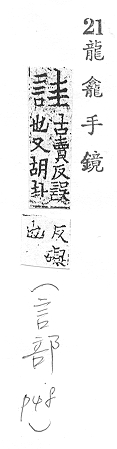 21 龍龕手鏡
詿
古賣反誤
也又胡卦
反礙
也
(言部 p48)